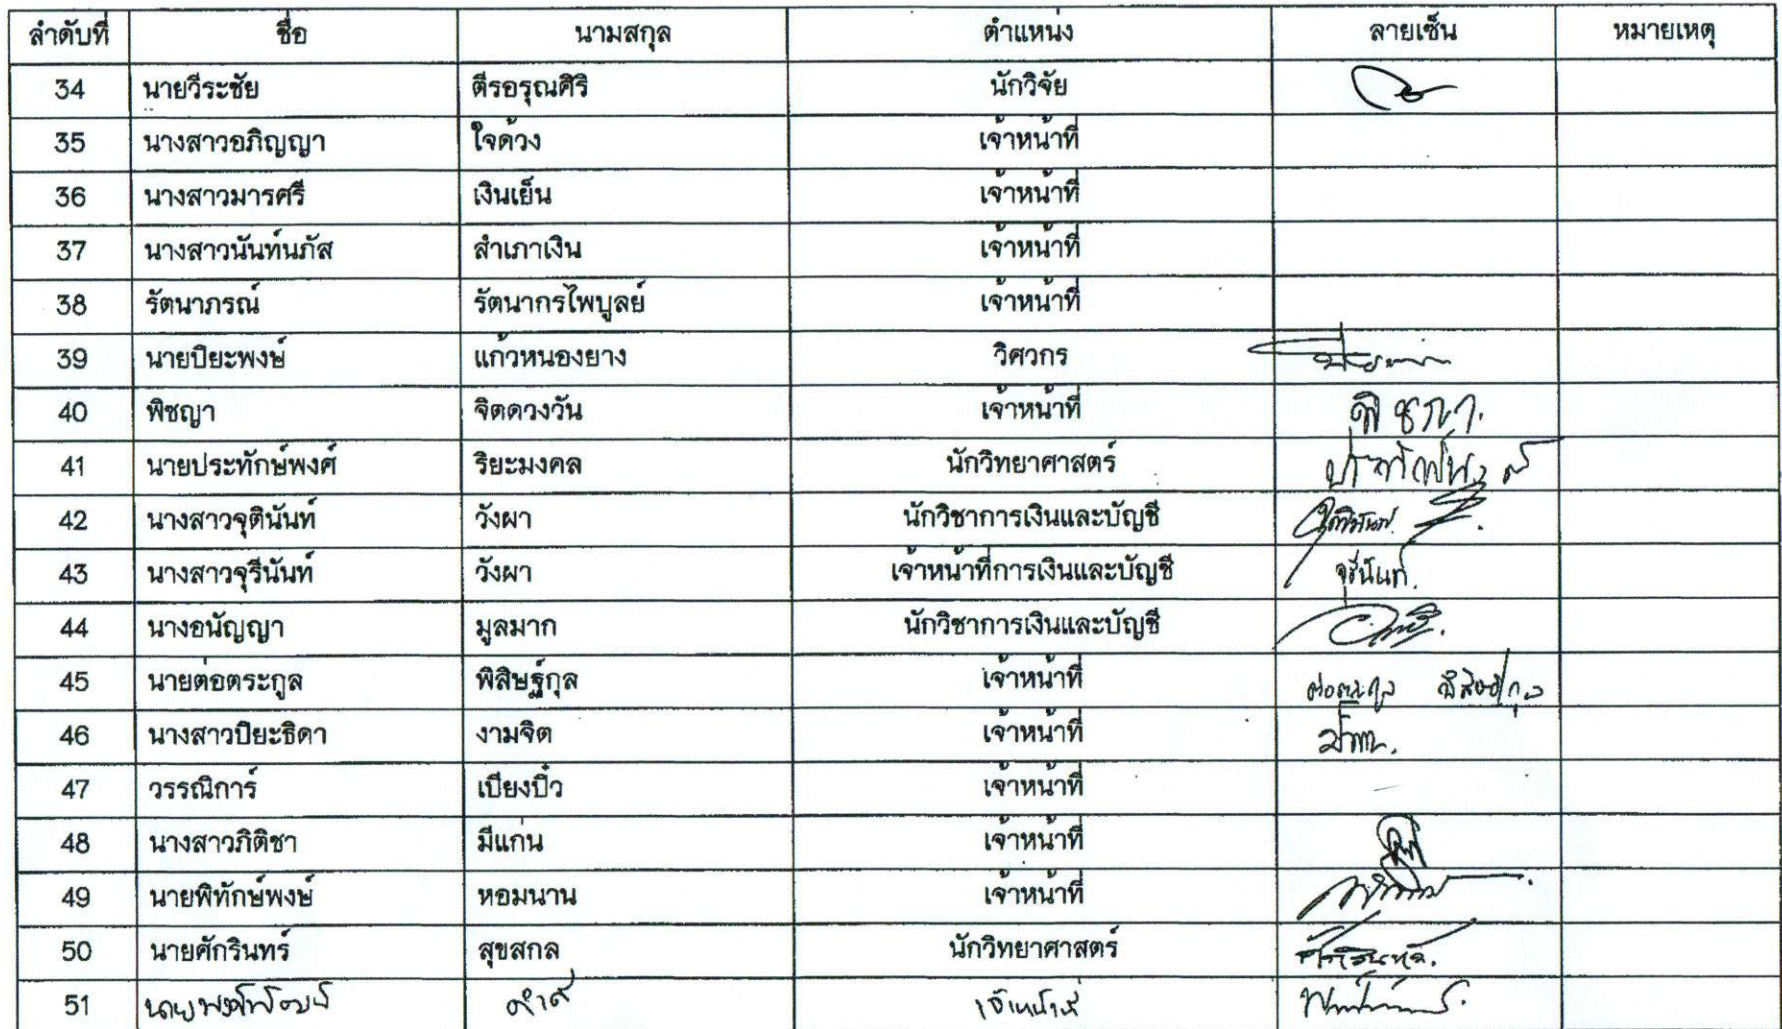 ลำดับที่ ชื่อ นามสกุล ตำแหน่ง ลายเซ็น หมายเหตุ
34 นายวีระชัย ตีรอรุณศิริ นักวิจัย
35 นางสาวอภิญญา ใจด้วง เจ้าหน้าที่
36 นางสาวมารศรี เงินเย็น เจ้าหน้าที่
37 นางสาวนันท์นภัส สำเภาเงิน เจ้าหน้าที่
38 รัตนาภรณ์ รัตนากรไพบูลย์ เจ้าหน้าที่
39 นายปิยะพงษ์ แก้วหนองยาง วิศวกร
40 พิชญา จิตดวงวัน เจ้าหน้าที่ พิชญา.
41 นายประทักษ์พงศ์ ริยะมงคล นักวิทยาศาสตร์
42 นางสาวจุตินันท์ วังผา นักวิชาการเงินและบัญชี
43 นางสาวจุรีนันท์ วังผา เจ้าหน้าที่การเงินและบัญชี จุรีนันท์.
44 นางอนัญญา มูลมาก นักวิชาการเงินและบัญชี
45 นายต่อตระกูล พิสิษฐ์กุล เจ้าหน้าที่ ต่อตระกูล พิสิษฐ์กุล
46 นางสาวปิยะธิดา งามจิต เจ้าหน้าที่
47 วรรณิการ์ เบียงบิ๋ว เจ้าหน้าที่
48 นางสาวภิติชา มีแก่น เจ้าหน้าที่
49 นายพิทักษ์พงษ์ หอมนาน เจ้าหน้าที่
50 นายศักรินทร์ สุขสกล นักวิทยาศาสตร์
51 เจ้าหน้าที่